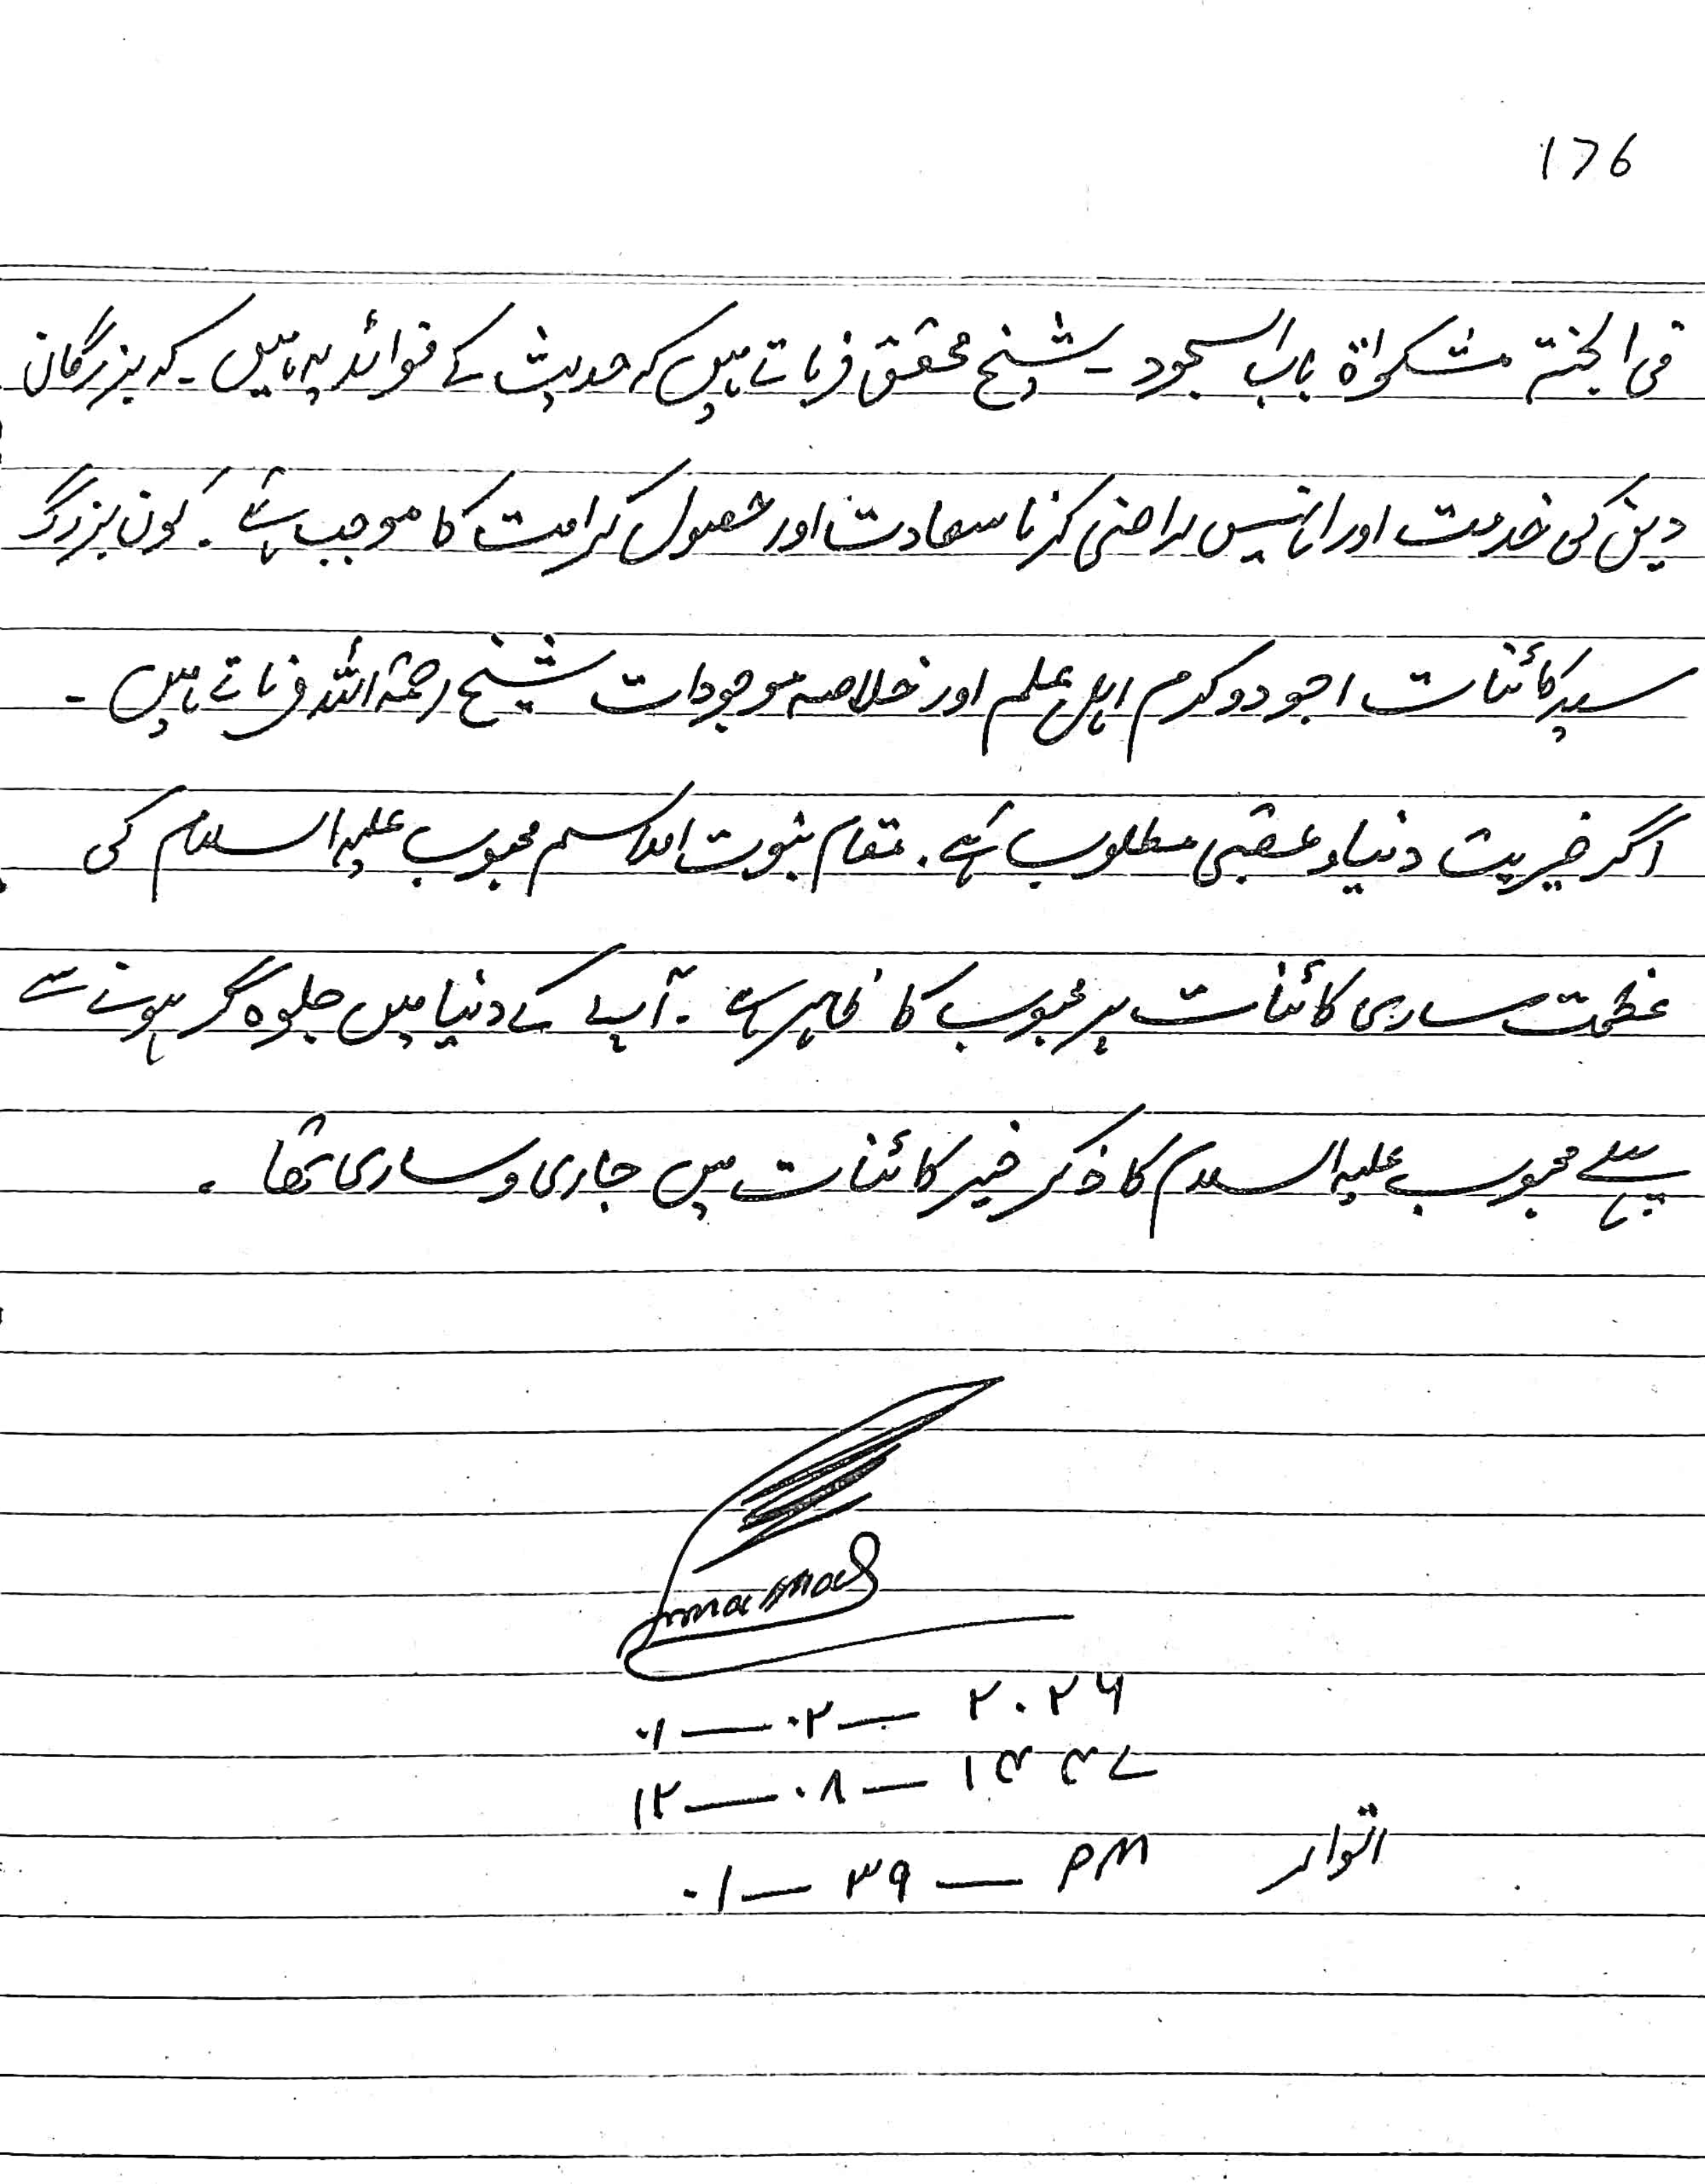 176
فی الجنتہ مشکواۃ باب السجود ۔ شیخ محقق فرماتے ہیں کہ حدیث کے فوائد یہ ہیں ۔ کہ بزرگان
دین کی خدمت اور انہیں راضی کرنا سعادت اور حصول کرامت کا موجب ہے ۔ کون بزرگ
سید کائنات اجود و کرم اہل علم اور خلاصہ موجودات شیخ رحمۃ اللہ فرماتے ہیں ۔
اگر خیریت دنیا و عقبیٰ مطلوب ہے ۔ مقام نبوت اور اسم محبوب علیہ السلام کی
عظمت ساری کائنات پر محبوب کا ظاہر ہے ۔ آپ کے دنیا میں جلوہ گر ہونے سے
پہلے محبوب علیہ السلام کا ذکر خیر کائنات میں جاری و ساری تھا ۔
۰۱ — ۰۲ — ۲۰۲۶
۱۲ — ۰۸ — ۱۴۴۷
۰۱ — ۳۹ — PM اتوار